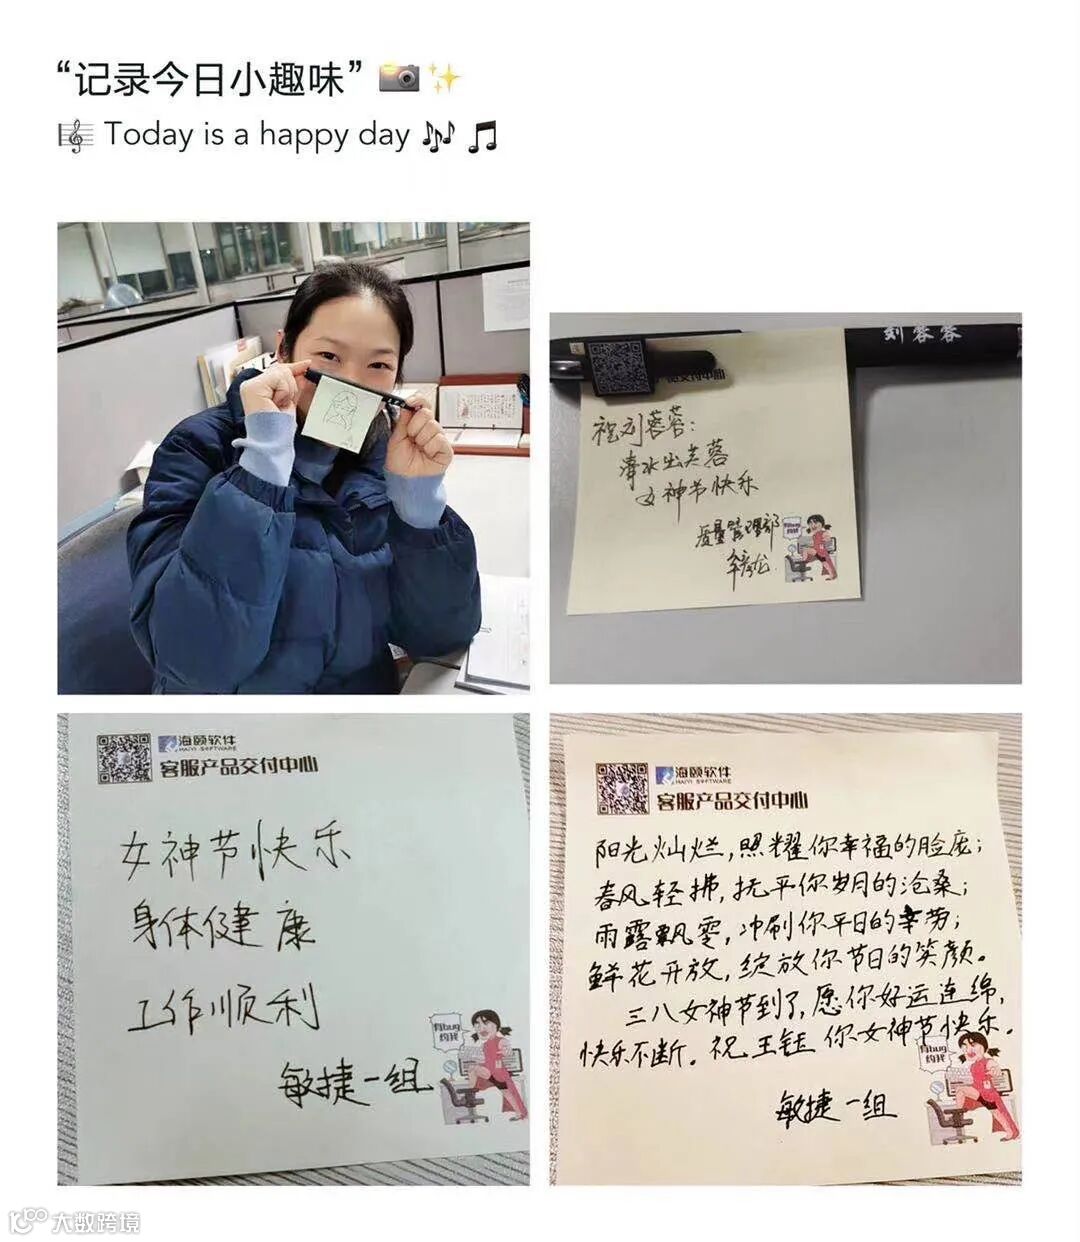 “记录今日小趣味”
Today is a happy day
刘蓉蓉
产品交付中心
祝刘蓉蓉:
清水出芙蓉
女神节快乐
质量管理部
海颐软件
HAIYI SOFTWARE
客服产品交付中心
女神节快乐
身体健康
工作顺利
有bug
约我
敏捷一组
海颐软件
HAIYI SOFTWARE
客服产品交付中心
阳光灿烂,照耀你幸福的脸庞;
春风轻拂,抚平你岁月的沧桑;
雨露飘零,冲刷你平日的辛劳;
鲜花开放,绽放你节日的笑颜。
三八女神节到了,愿你好运连绵,
快乐不断。祝王钰你女神节快乐。
有bug
约我
敏捷一组
大数跨境